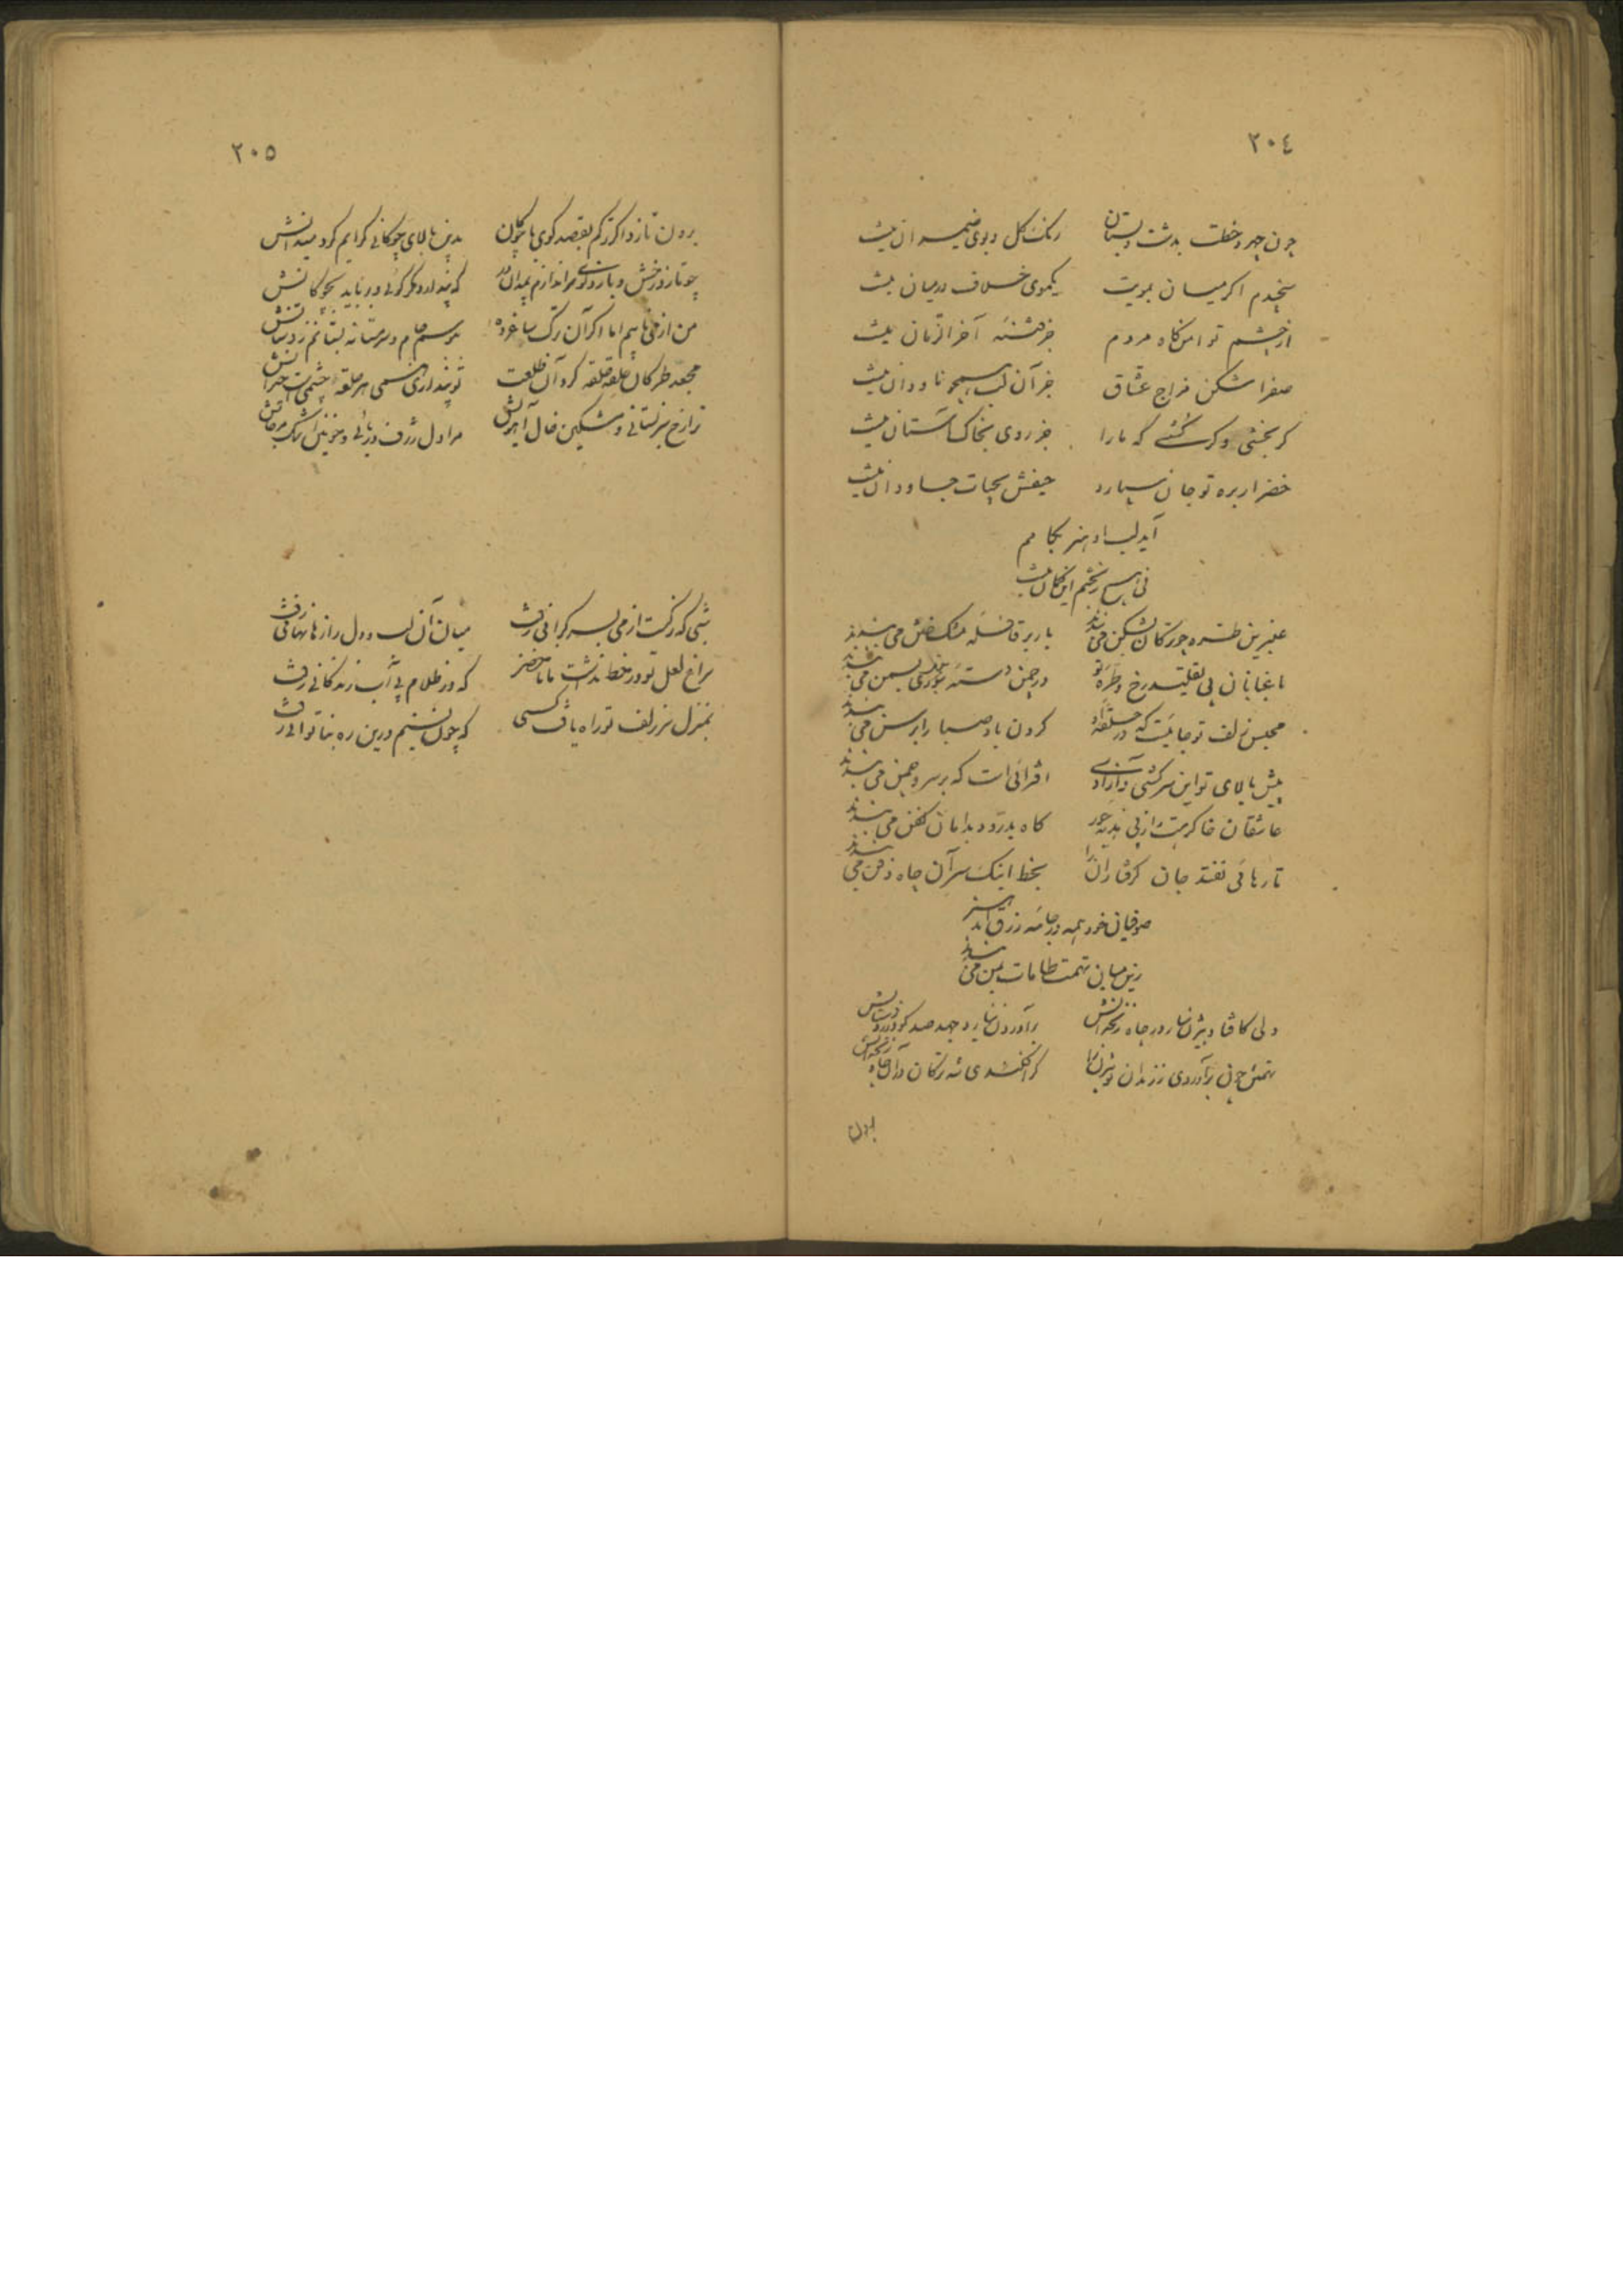 ٢٠٤
چون چهر و خطت بدشت و بستان رنک کل و بوی ضیمران نیست
سنجیدم اکر میان بمویت یکموی خلاف درمیان نیست
از چشم تو امن کاه مردم جز فتنه آخر الزمان نیست
صفرا شکن مزاج عشاق جز آن لب همچو ناردان نیست
کر بخشی و کر کشی که ما را جز روی بخاک آستان نیست
خضر ار بره تو جان سپارد حیفش بحیات جاودان نیست
آید لب او هنر بکامم
نی نی هیچ بختم این کمان نیست
عنبرین طره چو ترکان بشکن می بندند بار بر قافله مشک ختن می بندند
باغبانان پی تقلید رخ و طره تو در چمن دسته سوری بسمن می بندند
محبس زلف تو جائیست که در حلقه او کردن باد صبا را برسن می بندند
پیش بالای تو این سرکشی و آزادی افترائی است که بر سرو چمن می بندند
عاشقان خاک رهت از پی هدیه حور کاه بدرود بدامان کفن می بندند
تا رهائی نفتد جان کرفتاران را بخط اینک سر آن چاه ذقن می بندند
صوفیان خود همه در جامه زرق اند هنر
زین میان تهمت طامات بمن می بندند
ولی کافتاد بیژن سا در چاه زنخدانش برآوردن نیارد جهد صد کودرز و دستانش
تهمتن چون برآوردی ززندان بیژن را کر افکندی شه ترکان در آن چاه زنخدانش
برون
٢٠٥
برون تازد اکر ترکم بقصد کوی با چوکان بدین بالای چوکانی کرایم کرد میدانش
چو تازد رخش و یازد کوی سر اندازم بمیدان در که پندارد مکر کوئی و برباید بچوکانش
من از می تائبم اما اکر آن ترک ساغر ده ببوسم جام و سرمستانه بستانم ز دستانش
مجعد طرکان حلقه حلقه کرد آن طلعت تو پنداری همی هر حلقه چشمی است حیرانش
ترا رخ نیرستانی و مشکین خال آهویش مرا دل ژرف دریائی و خونین اشک مرجانش
شبی که نرکست از می بسر کرانی رفت میان آن لب و دل رازها نهانی رفت
سراغ لعل تو در خط نداشت مانا خضر که در ظلام پی آب زندکانی رفت
بمنزل سر زلف تو راه یافت کسی که چون نسیم درین ره بناتوانی رفت